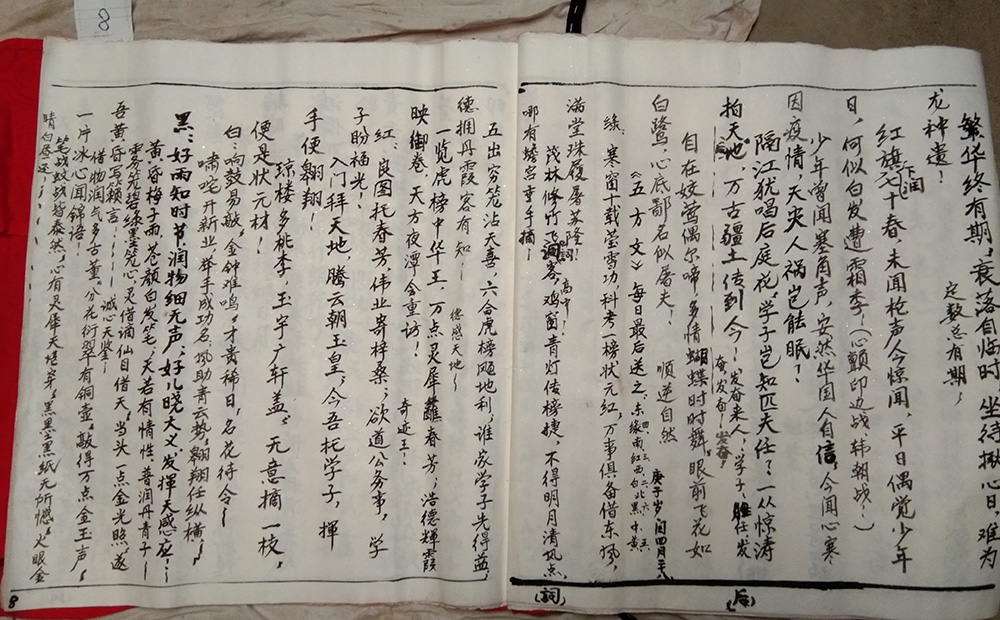 8
繁华终有期，衰落自临时，坐待揪心日，难为
龙神遣！
定数总有期，
红旗七十春，未闻枪声今惊闻，平日偶觉少年
卞润
日，何似白发遭霜季，（心颤印边战韩朝战？）
少年曾闻寒角声，安然华国人自信，今闻心寒
因疫情，天灾人祸岂能眠？
隔江犹唱后庭花，学子岂知匹夫任？一从惊涛
拍天地，万古疆土传到今！发奋来人，学子，胜任发
奋，发奋！发奋！
自在姣莺偶尔啼，多情蝴蝶时时舞，眼前飞花如
白鹭，心底鄙名似屠夫！
顺逆自然
《五方文》每日最后送之，东绿南红西白北黑中黄
庚子岁闰四月
绿：寒窗十载莹雪功，科考一榜状元红，万事俱备借东风，
满堂珠履屠苏隆！
高中！
茂林修竹飞洞客，鸡窗青灯传榜捷，不得明月清风点，
哪有蟾宫重手摘！
（后）
（詞）
五出穷笼沾天喜，六合虎榜飚地利，谁家学子先得益，
德拥丹霞客有知！
德感天地！
一览虎榜中华王，万点灵犀雝春芳，浩德辉霞
映御卷，天方夜潭今重访！
奇迹王！
红：良图托春芳，伟业寄梓桑，欲道公务事，学
子盼福光！
入门拜天地，腾云朝玉皇，今吾托学子，挥
手便翱翔！
琼楼多桃李，玉宇广轩盖，无意摘一枝，
便是状元材！
白：响鼓易敲，金钟难鸣，才黄稀日，名花待今！
啸咤开新业，举手成功名，风助青云势，翱翔任纵横！
黑：好雨知时节，润物细无声，好儿晓大义，发挥天感应！
黄：黄昏梅子雨，苍颜白发笔，天若有情性，普润丹青子！
雾旁笼碧绿，墨笼心，灵借谪仙目借天，当头一点金光照，遂
吾黄昏写颖言！
诚心天鉴！
借物润气多古董，分花衍翠有铜壶，敲得万点金玉声，
一片冰心闻锦语！
笔战鼓战皆泰然，心有灵犀天堪穿，黑墨黑纸无所憾，火眼金
睛白昼还！
8